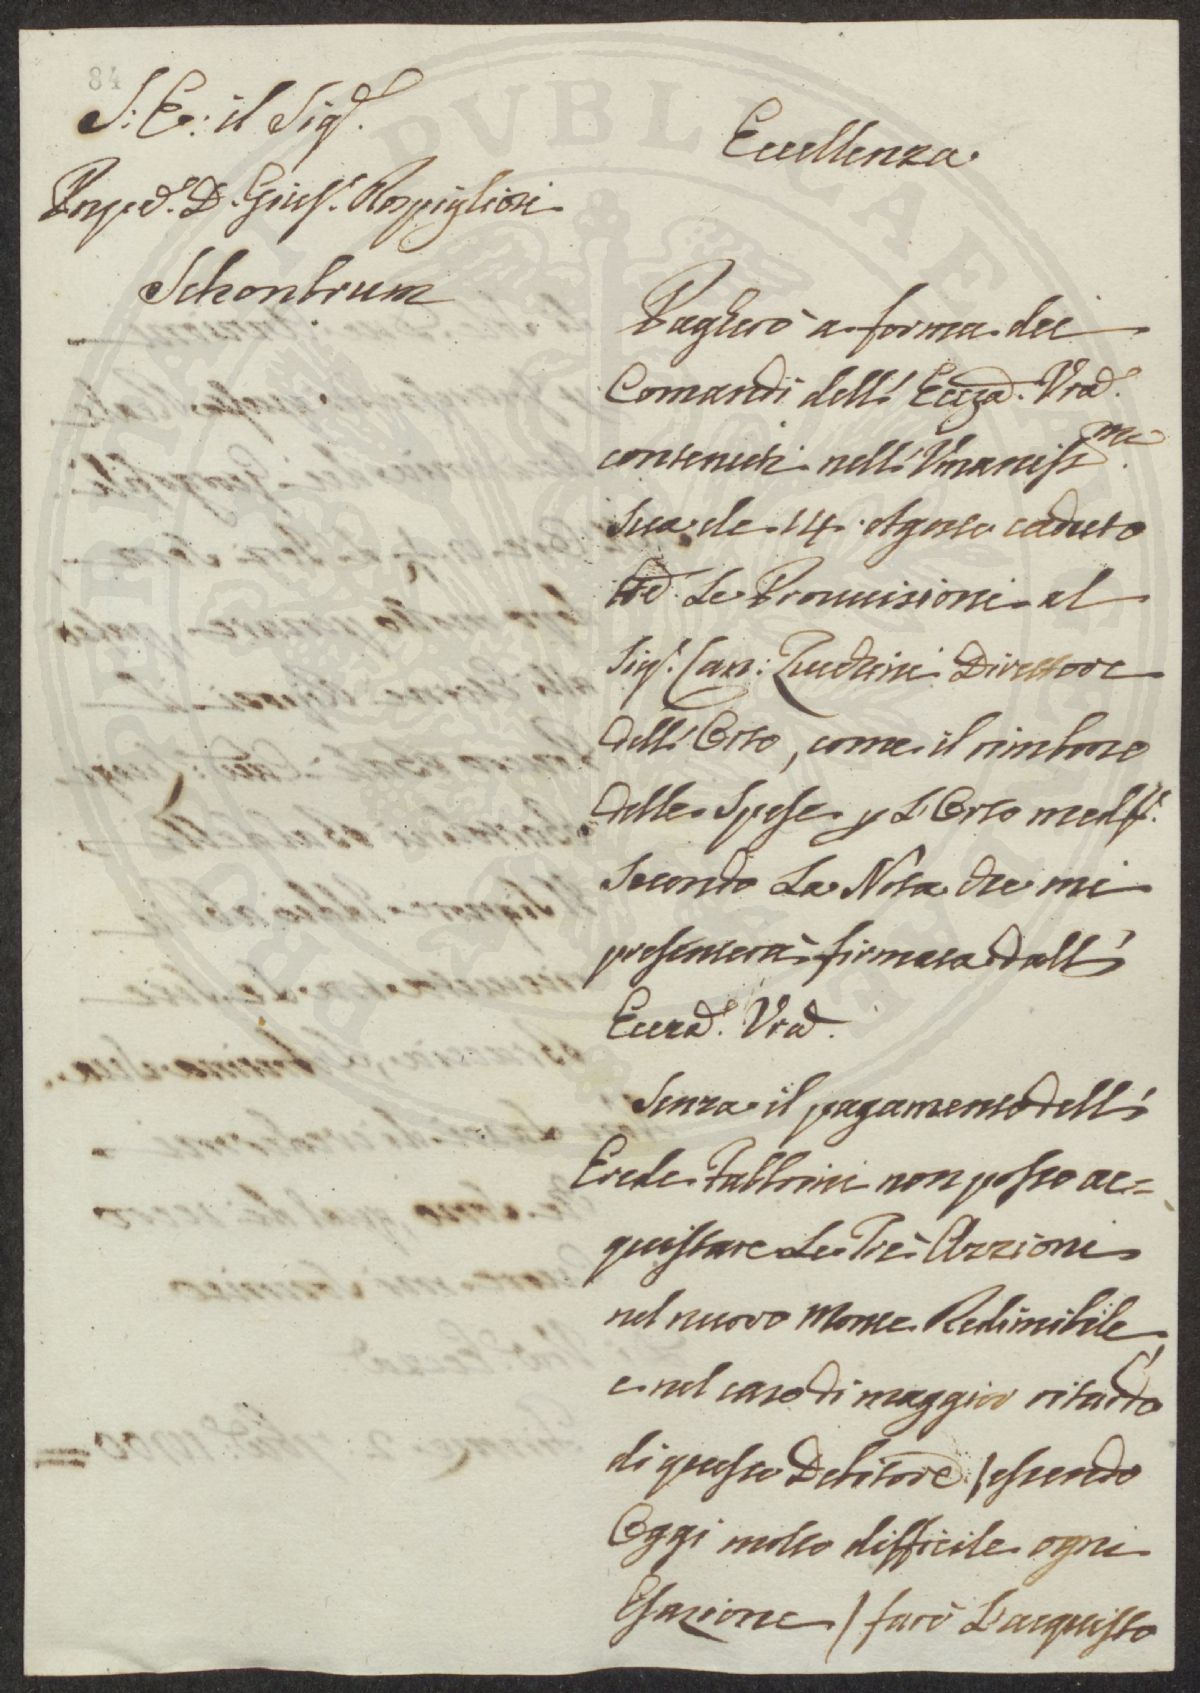 84
S: E: il Sig.e
D. Gius.e Rospigliosi
Schonbrum
Eccellenza
Pagherò a forma dei
Comandi dell' Eccza. Vra.
contenuti nell' Umaniss.ma
Sua de 14. Agosto caduto
Le Provvisioni al
Sig.e Can: Zucchini Direttore
dell' Orto, come il rimborso
delle Spese p L'Orto med.o
Secondo La Nota che mi
presenterà firmata dall'
Eccza. Vra.
Senza il pagamento dell'
Erede Fabbrini non posso ac=
quistare Le Tre Azzioni
nel nuovo Monte Redimibile,
e nel caso di maggior ritardo
di questo Debitore /essendo
Oggi molto difficile ogni
Esazione/ farò L'acquisto
PUBLICAE